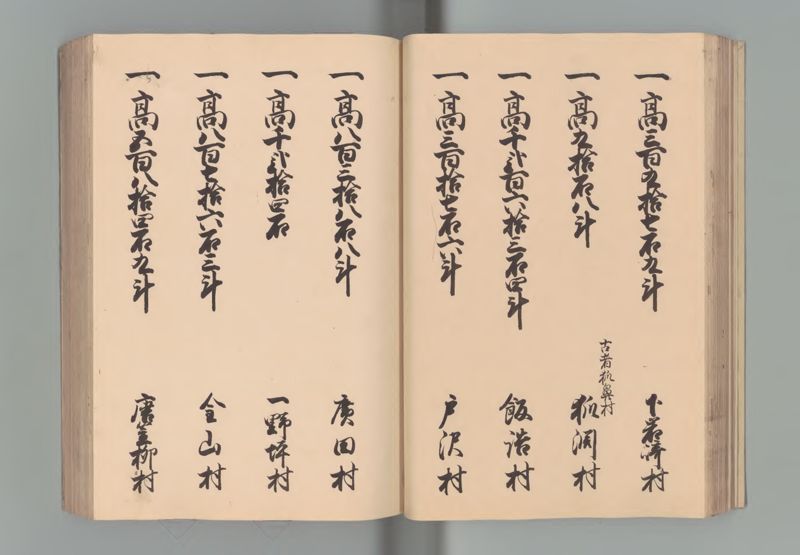 一高三百九拾七石九斗 下岩崎村
一高九拾石八斗 狐渕村
古者狐鼻村
一高千弐百六拾三石四斗 飯詰村
一高三百拾七石六斗 戸沢村
一高八百三拾八石八斗 廣田村
一高千弐拾四石 一野坪村
一高八百七拾六石三斗 金山村
一高五百八拾四石九斗 村